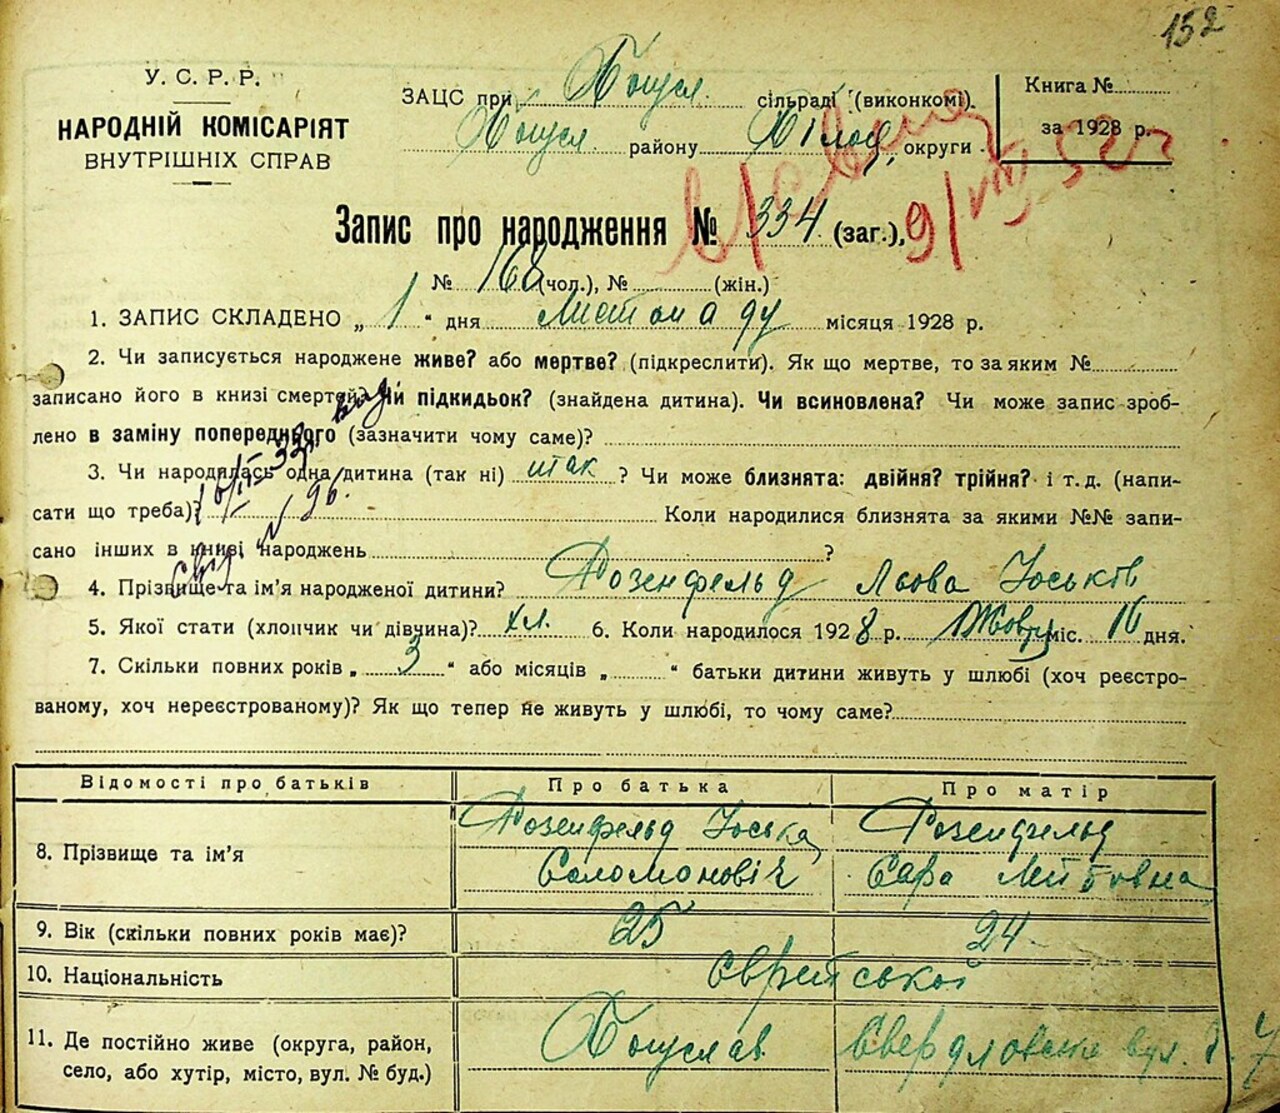 152
У. С. Р. Р.
НАРОДНІЙ КОМІСАРІЯТ
ВНУТРІШНІХ СПРАВ
ЗАЦС при Богусл. сільраді (виконкомі).
Богусл. району Білоц. округи
Книга №
за 1928 р.
Запис про народження № 334 (заг.),
№ 168 (чол.), № (жін.)
1. ЗАПИС СКЛАДЕНО „ 1 “ дня Листопаду місяця 1928 р.
2. Чи записується народжене живе? або мертве? (підкреслити). Як що мертве, то за яким №
записано його в книзі смертей? Чи підкидьок? (знайдена дитина). Чи всиновлена? Чи може запис зроб-
лено в заміну попереднього (зазначити чому саме)?
3. Чи народилась одна дитина (так ні) так ? Чи може близнята: двійня? трійня? і т. д. (напи-
сати що треба)? Коли народилися близнята за якими №№ запи-
сано інших в книзі народжень ?
4. Прізвище та ім’я народженої дитини? Розенфельд Льова Йоськів
5. Якої стати (хлопчик чи дівчина)? хл. 6. Коли народилося 1928 р. Жовт міс. 16 дня.
7. Скільки повних років „ 3 “ або місяців „ “ батьки дитини живуть у шлюбі (хоч реєстро-
ваному, хоч нереєстрованому)? Як що тепер не живуть у шлюбі, то чому саме?
Відомості про батьків Про батька Про матір
8. Прізвище та ім’я Розенфельд Йоська Розенфельд
Соломоновіч Сара Лейбовна
9. Вік (скільки повних років має)? 25 24
10. Національність Єврейської
11. Де постійно живе (округа, район, Богуслав Свердловська вул. б. 7
село, або хутір, місто, вул. № буд.)